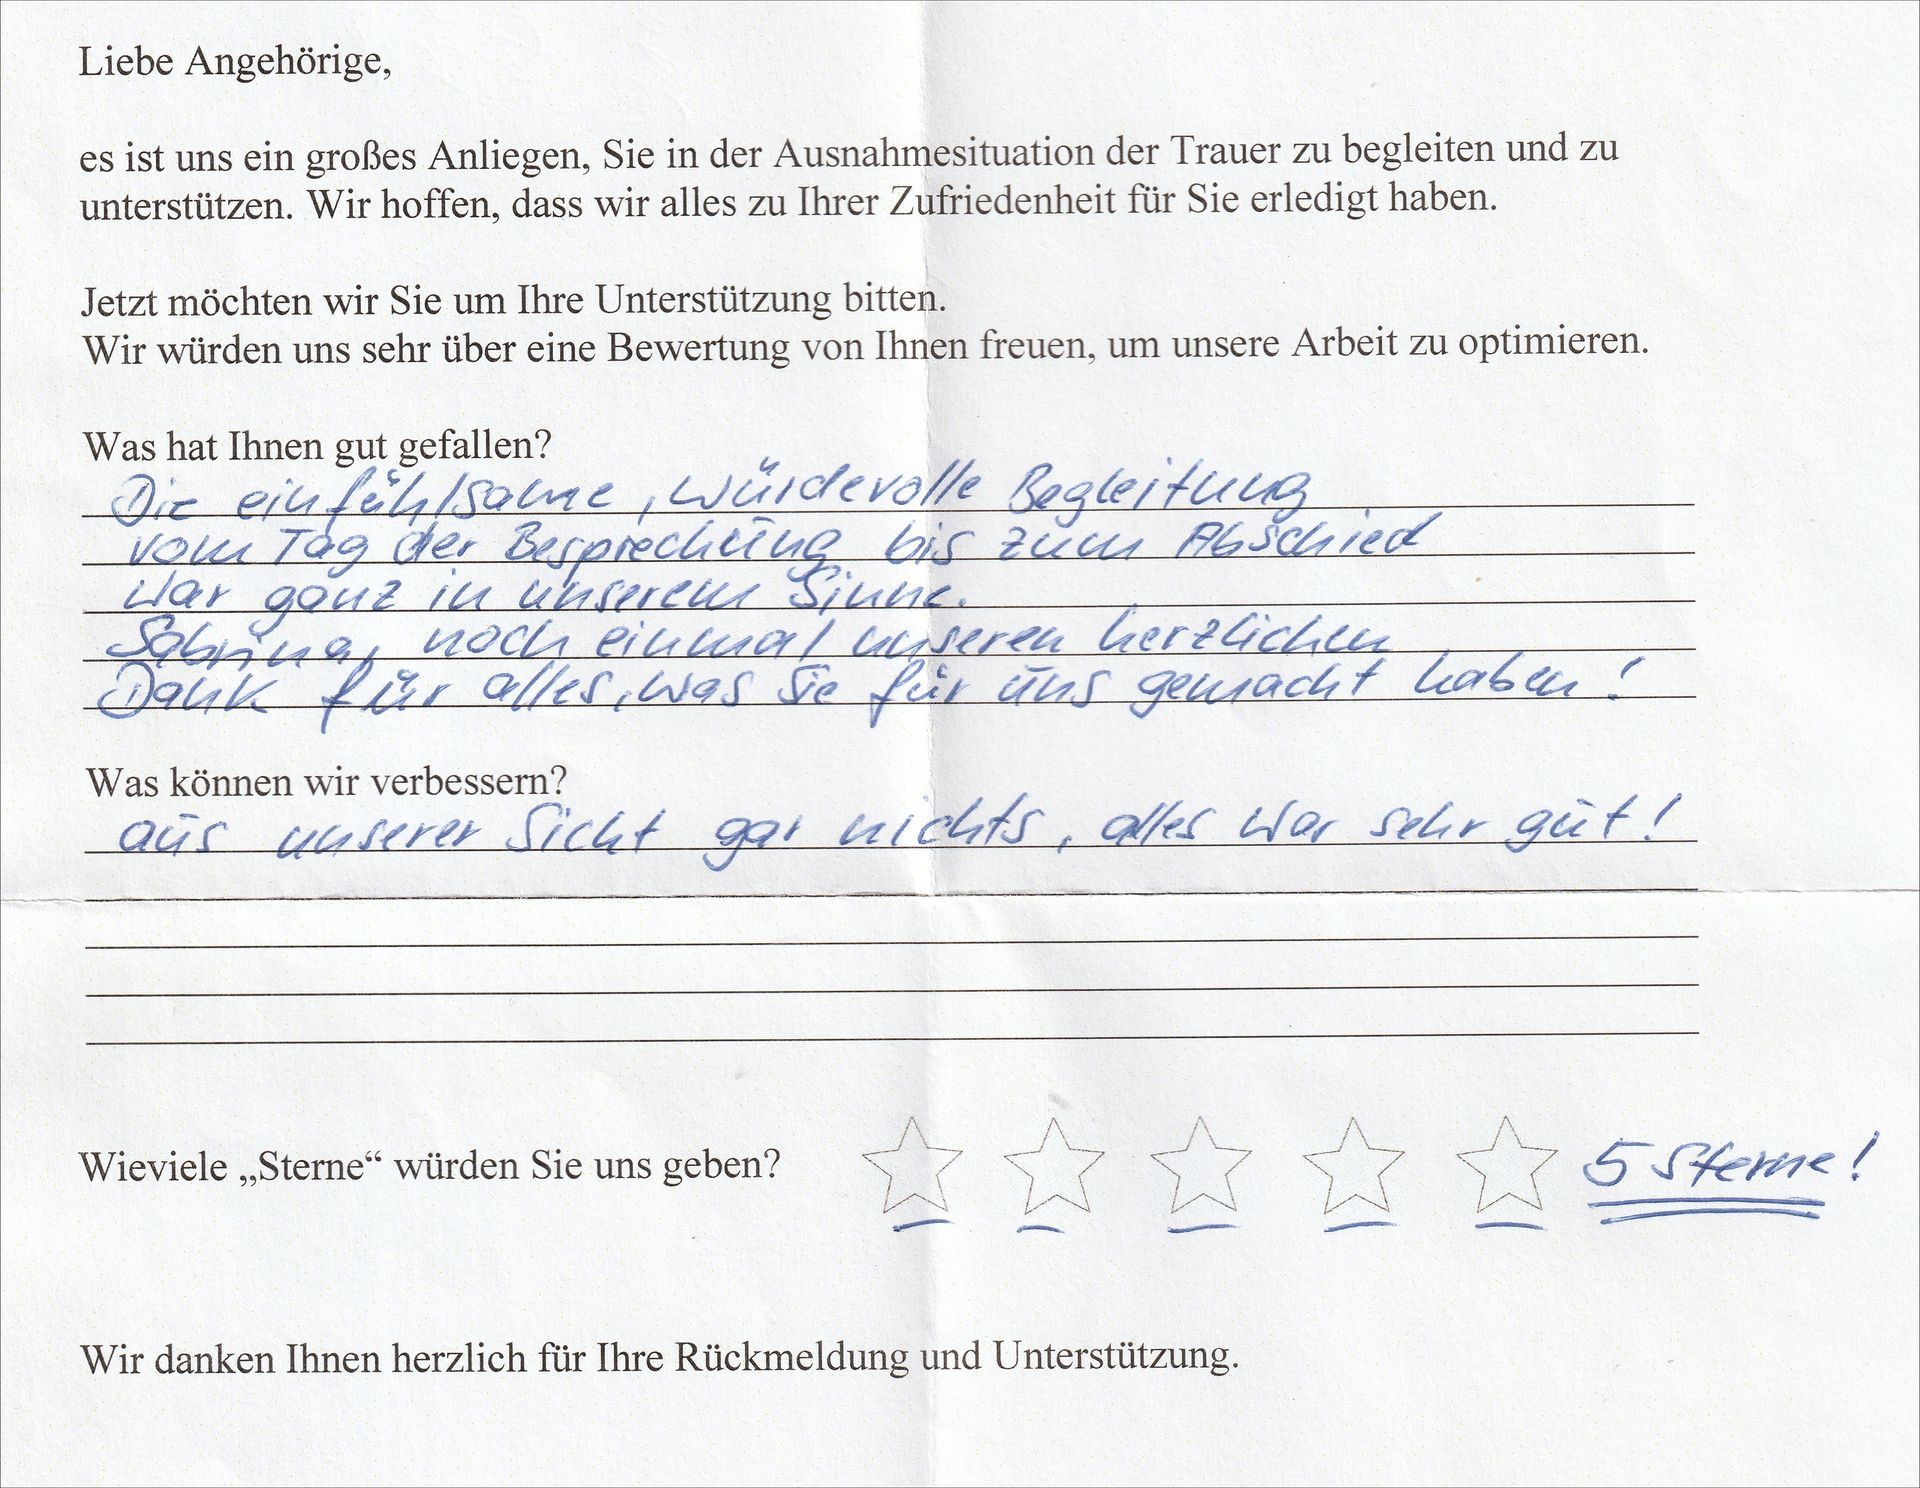 Liebe Angehörige,
es ist uns ein großes Anliegen, Sie in der Ausnahmesituation der Trauer zu begleiten und zu
unterstützen. Wir hoffen, dass wir alles zu Ihrer Zufriedenheit für Sie erledigt haben.
Jetzt möchten wir Sie um Ihre Unterstützung bitten.
Wir würden uns sehr über eine Bewertung von Ihnen freuen, um unsere Arbeit zu optimieren.
Was hat Ihnen gut gefallen?
Die einfühlsame, würdevolle Begleitung
vom Tag der Besprechung bis zum Abschied
war ganz in unserem Sinne.
Sabrina, noch einmal unseren herzlichen
Dank für alles, was Sie für uns gemacht haben!
Was können wir verbessern?
aus unserer Sicht gar nichts, alles war sehr gut!
Wieviele „Sterne“ würden Sie uns geben? 5 Sterne!
Wir danken Ihnen herzlich für Ihre Rückmeldung und Unterstützung.